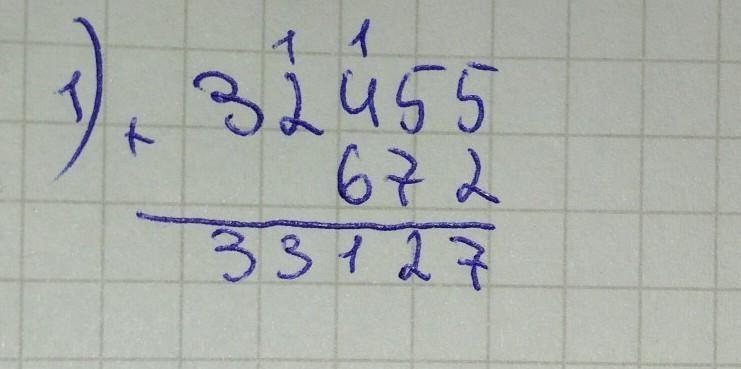 1 1
1) 32455
+ 672
33127